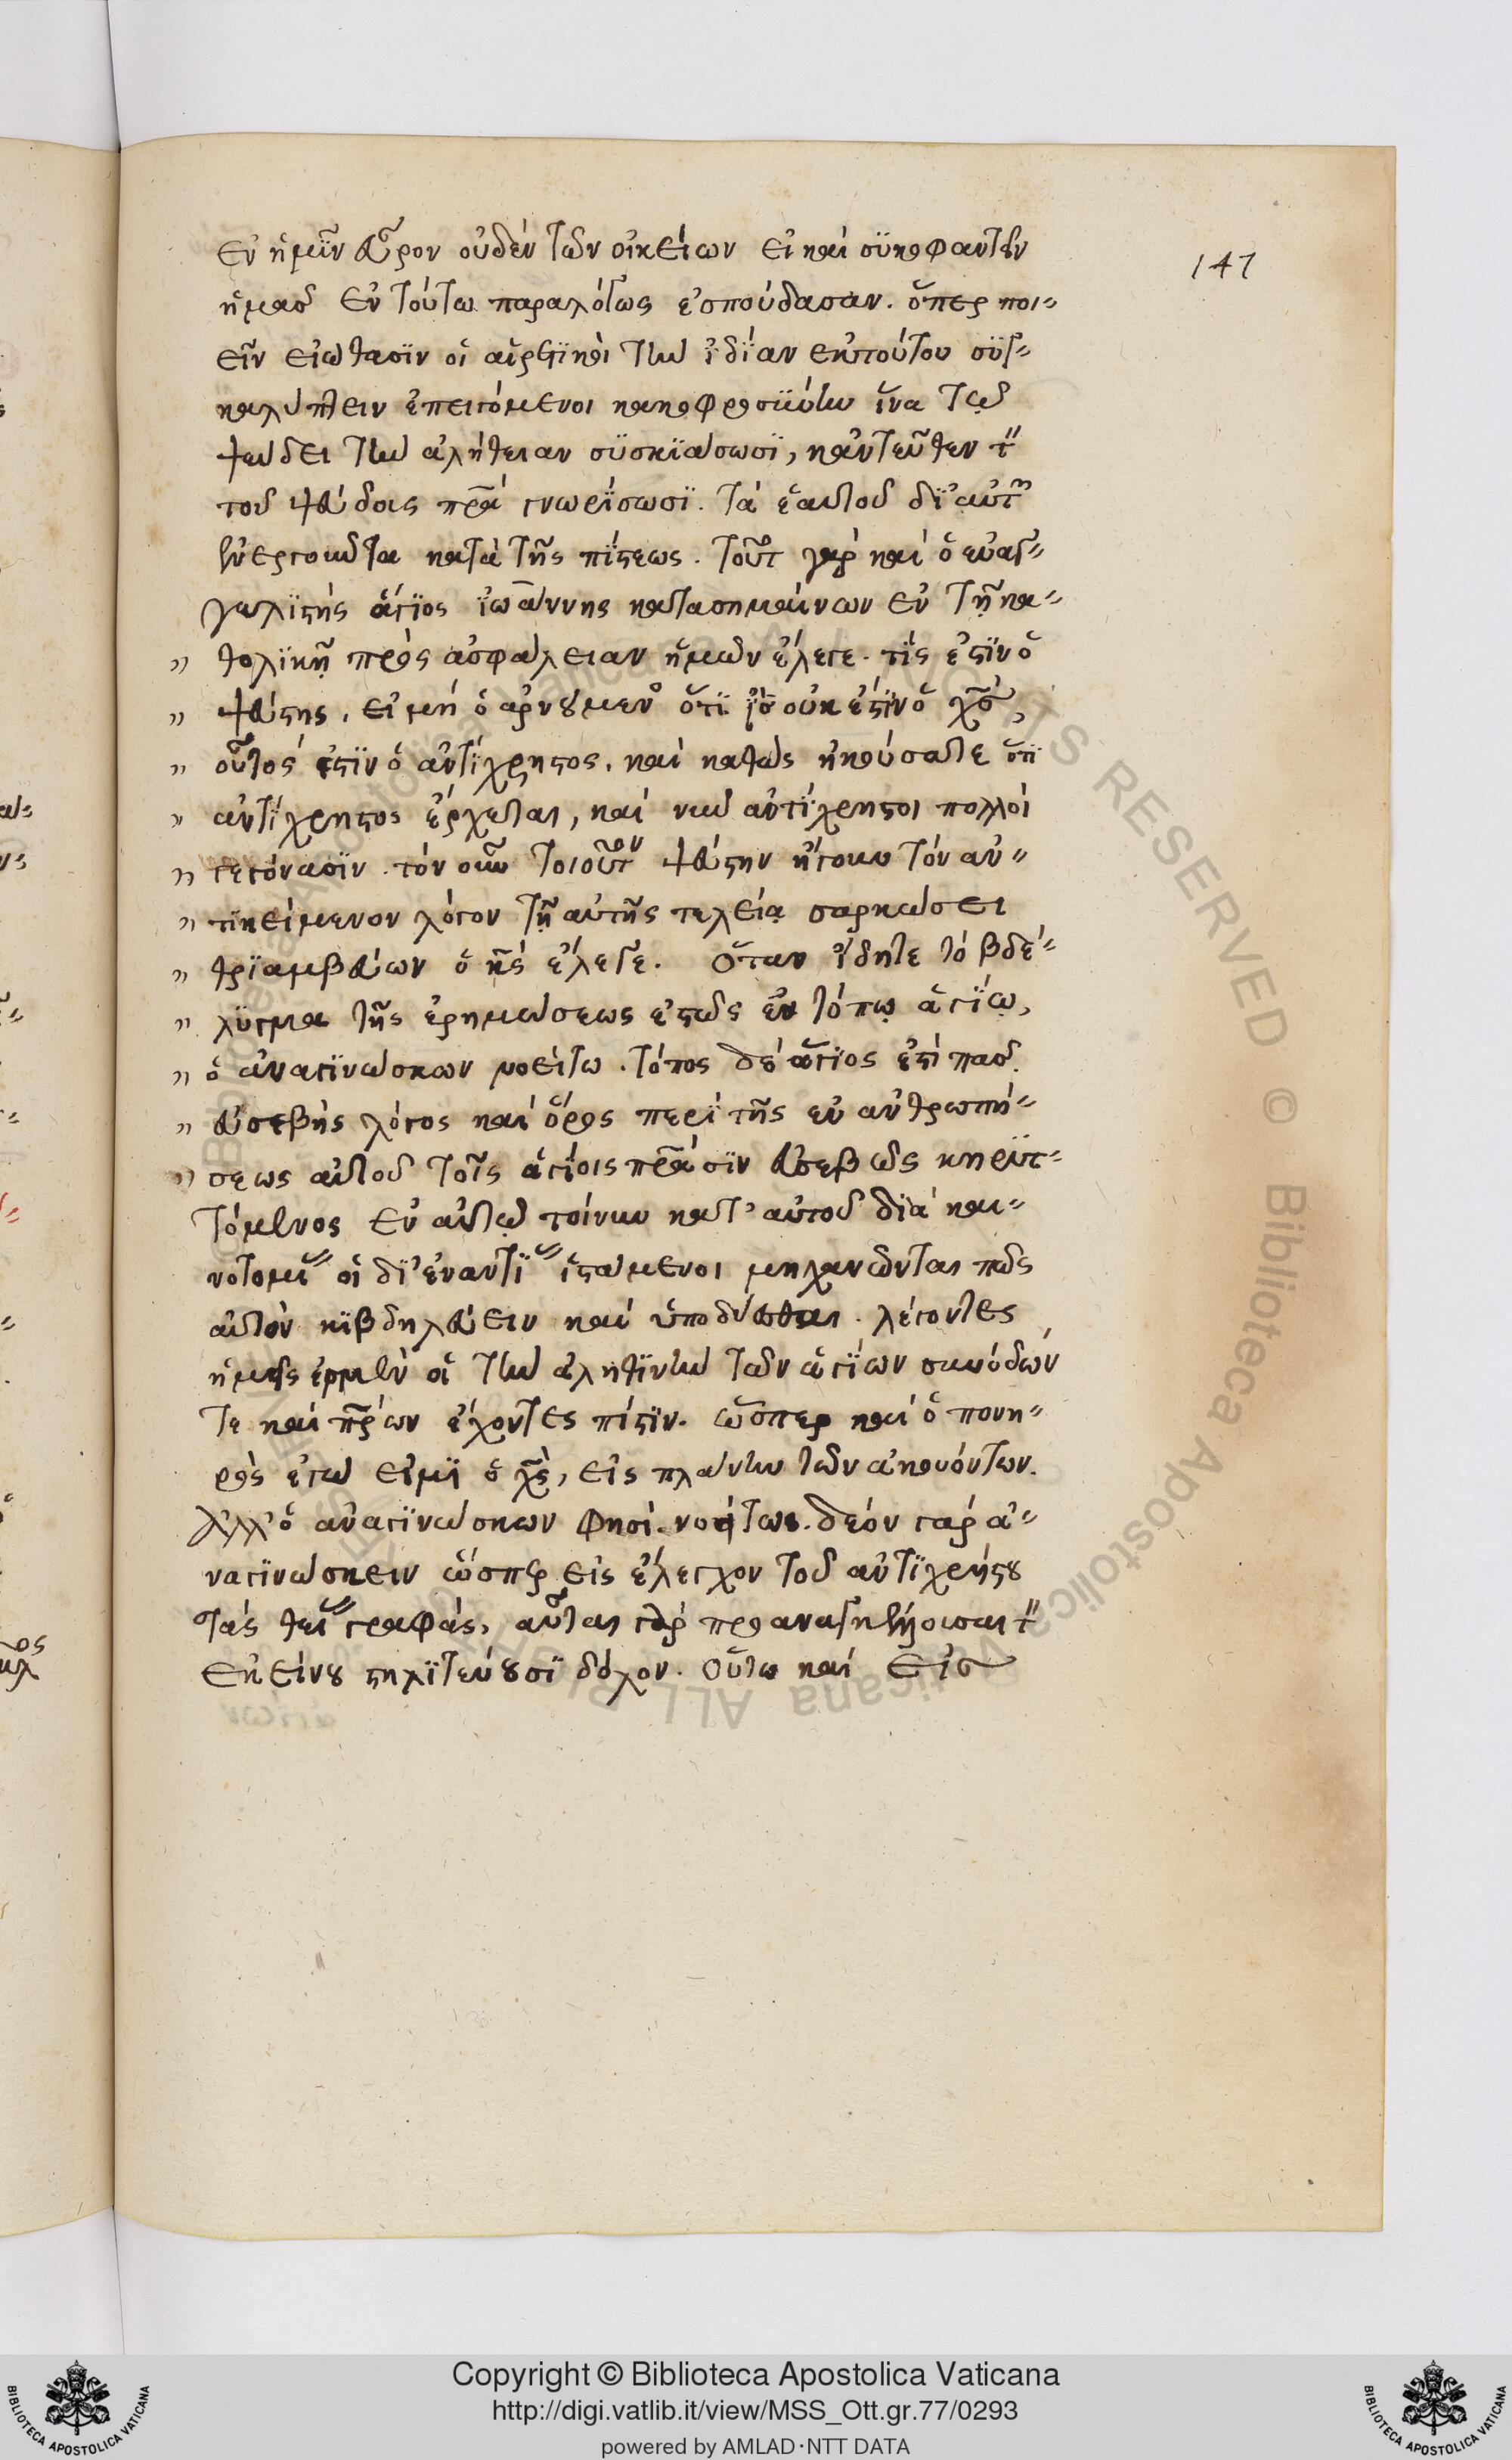 ἐν ἡμῖν εὗρον οὐδὲν τῶν οἰκείων εἰ καὶ συκοφαντεῖν
147
ἡμᾶς ἐν τούτω παραλόγως ἐσπούδασαν. ὅπερ ποι-
εῖν εἰώθασϊν οἱ αἱρετϊκοὶ τὴν ἰδίαν ἐκ τούτου συγ-
καλύπτειν ἐπειγόμενοι κακοφροσύνην ἵνα τῷ
ψεύδει τὴν ἀλήθειαν συσκϊάσωσϊ, κἀντεῦθεν τ
τοῦ ψεύδους πρα γνωρίσωσϊ. τὰ ἑαυτοῦ δι' αὐτ
ἐνεργοῦντα κατὰ τῆς πίστεως. τοῦτ γὰρ καὶ ὁ εὐαγ-
γελϊστὴς ἅγϊος ἰωάννης κατασημαίνων ἐν τῇ κα-
" θολϊκῇ πρὸς ἀσφάλειαν ἡμῶν ἔλεγε. τίς ἐστϊν ὁ
" ψεύστης, εἰ μὴ ὁ ἀρνούμεν ὅτι ἰς οὐκ ἔστϊν ὁ χς,
" οὗτός ἐστϊν ὁ ἀντίχρηστος. καὶ καθὼς ἠκούσατε ὅτϊ
" ἀντίχρηστος ἔρχεται, καὶ νῦν ἀντίχρηστοι πολλοὶ
" γεγόνασϊν. τὸν οὖν τοιοῦτον ψεύστην ἤγουν τὸν ἀν-
" τϊκείμενον λόγον τῇ αὐτῆς τελείᾳ σαρκώσει
" θρϊαμβεύων ὁ κς ἔλεγε. Ὅταν ἴδητε τὸ βδέ-
" λϋγμα τῆς ἐρημώσεως ἑστὼς ἐν τόπῳ ἁγίῳ,
" ὁ ἀναγϊνώσκων νοείτω. τόπος δὲ ἅγϊος ἐστὶ πᾶς
" εὐσεβὴς λόγος καὶ ὅρος περὶ τῆς ἐν ἀνθρωπή-
" σεως αὐτοῦ τοῖς ἁγίοις πράσϊν εὐσεβῶς κηρϋτ-
τόμενος ἐν αὐτῷ τοίνυν κατ' αὐτοῦ δϊὰ και-
νοτομι οἱ δι' ἐναντϊ ἱστάμενοι μηχανῶνται πῶς
αὐτὸν κϊβδηλεύειν καὶ ὑποδύεσθαι. λέγοντες
ἡμεῖς ἐσμὲν οἱ τὴν ἀληθϊνὴν τῶν ἁγίων συνόδων
τε καὶ πρων ἔχοντες πίστϊν. ὥσπερ καὶ ὁ πονη-
ρὸς ἐγώ εἰμϊ ὁ χς, εἰς πλάνην τῶν ἀκουόντων.
Ἀλλ' ὁ ἀναγϊνώσκων φησὶ νοείτω. δέον γὰρ ἀ-
ναγϊνώσκειν ὥσπερ εἰς ἔλεγχον τοῦ ἀντϊχρήστου
τὰς θει γραφάς, αὗται γὰρ προαναγ τ
ἐκείνου στηλϊτεύουσϊ δόλον. Οὕτω καὶ εἰς
Copyright © Biblioteca Apostolica Vaticana
http://digi.vatlib.it/view/MSS_Ott.gr.77/0293
powered by AMLAD·NTT DATA